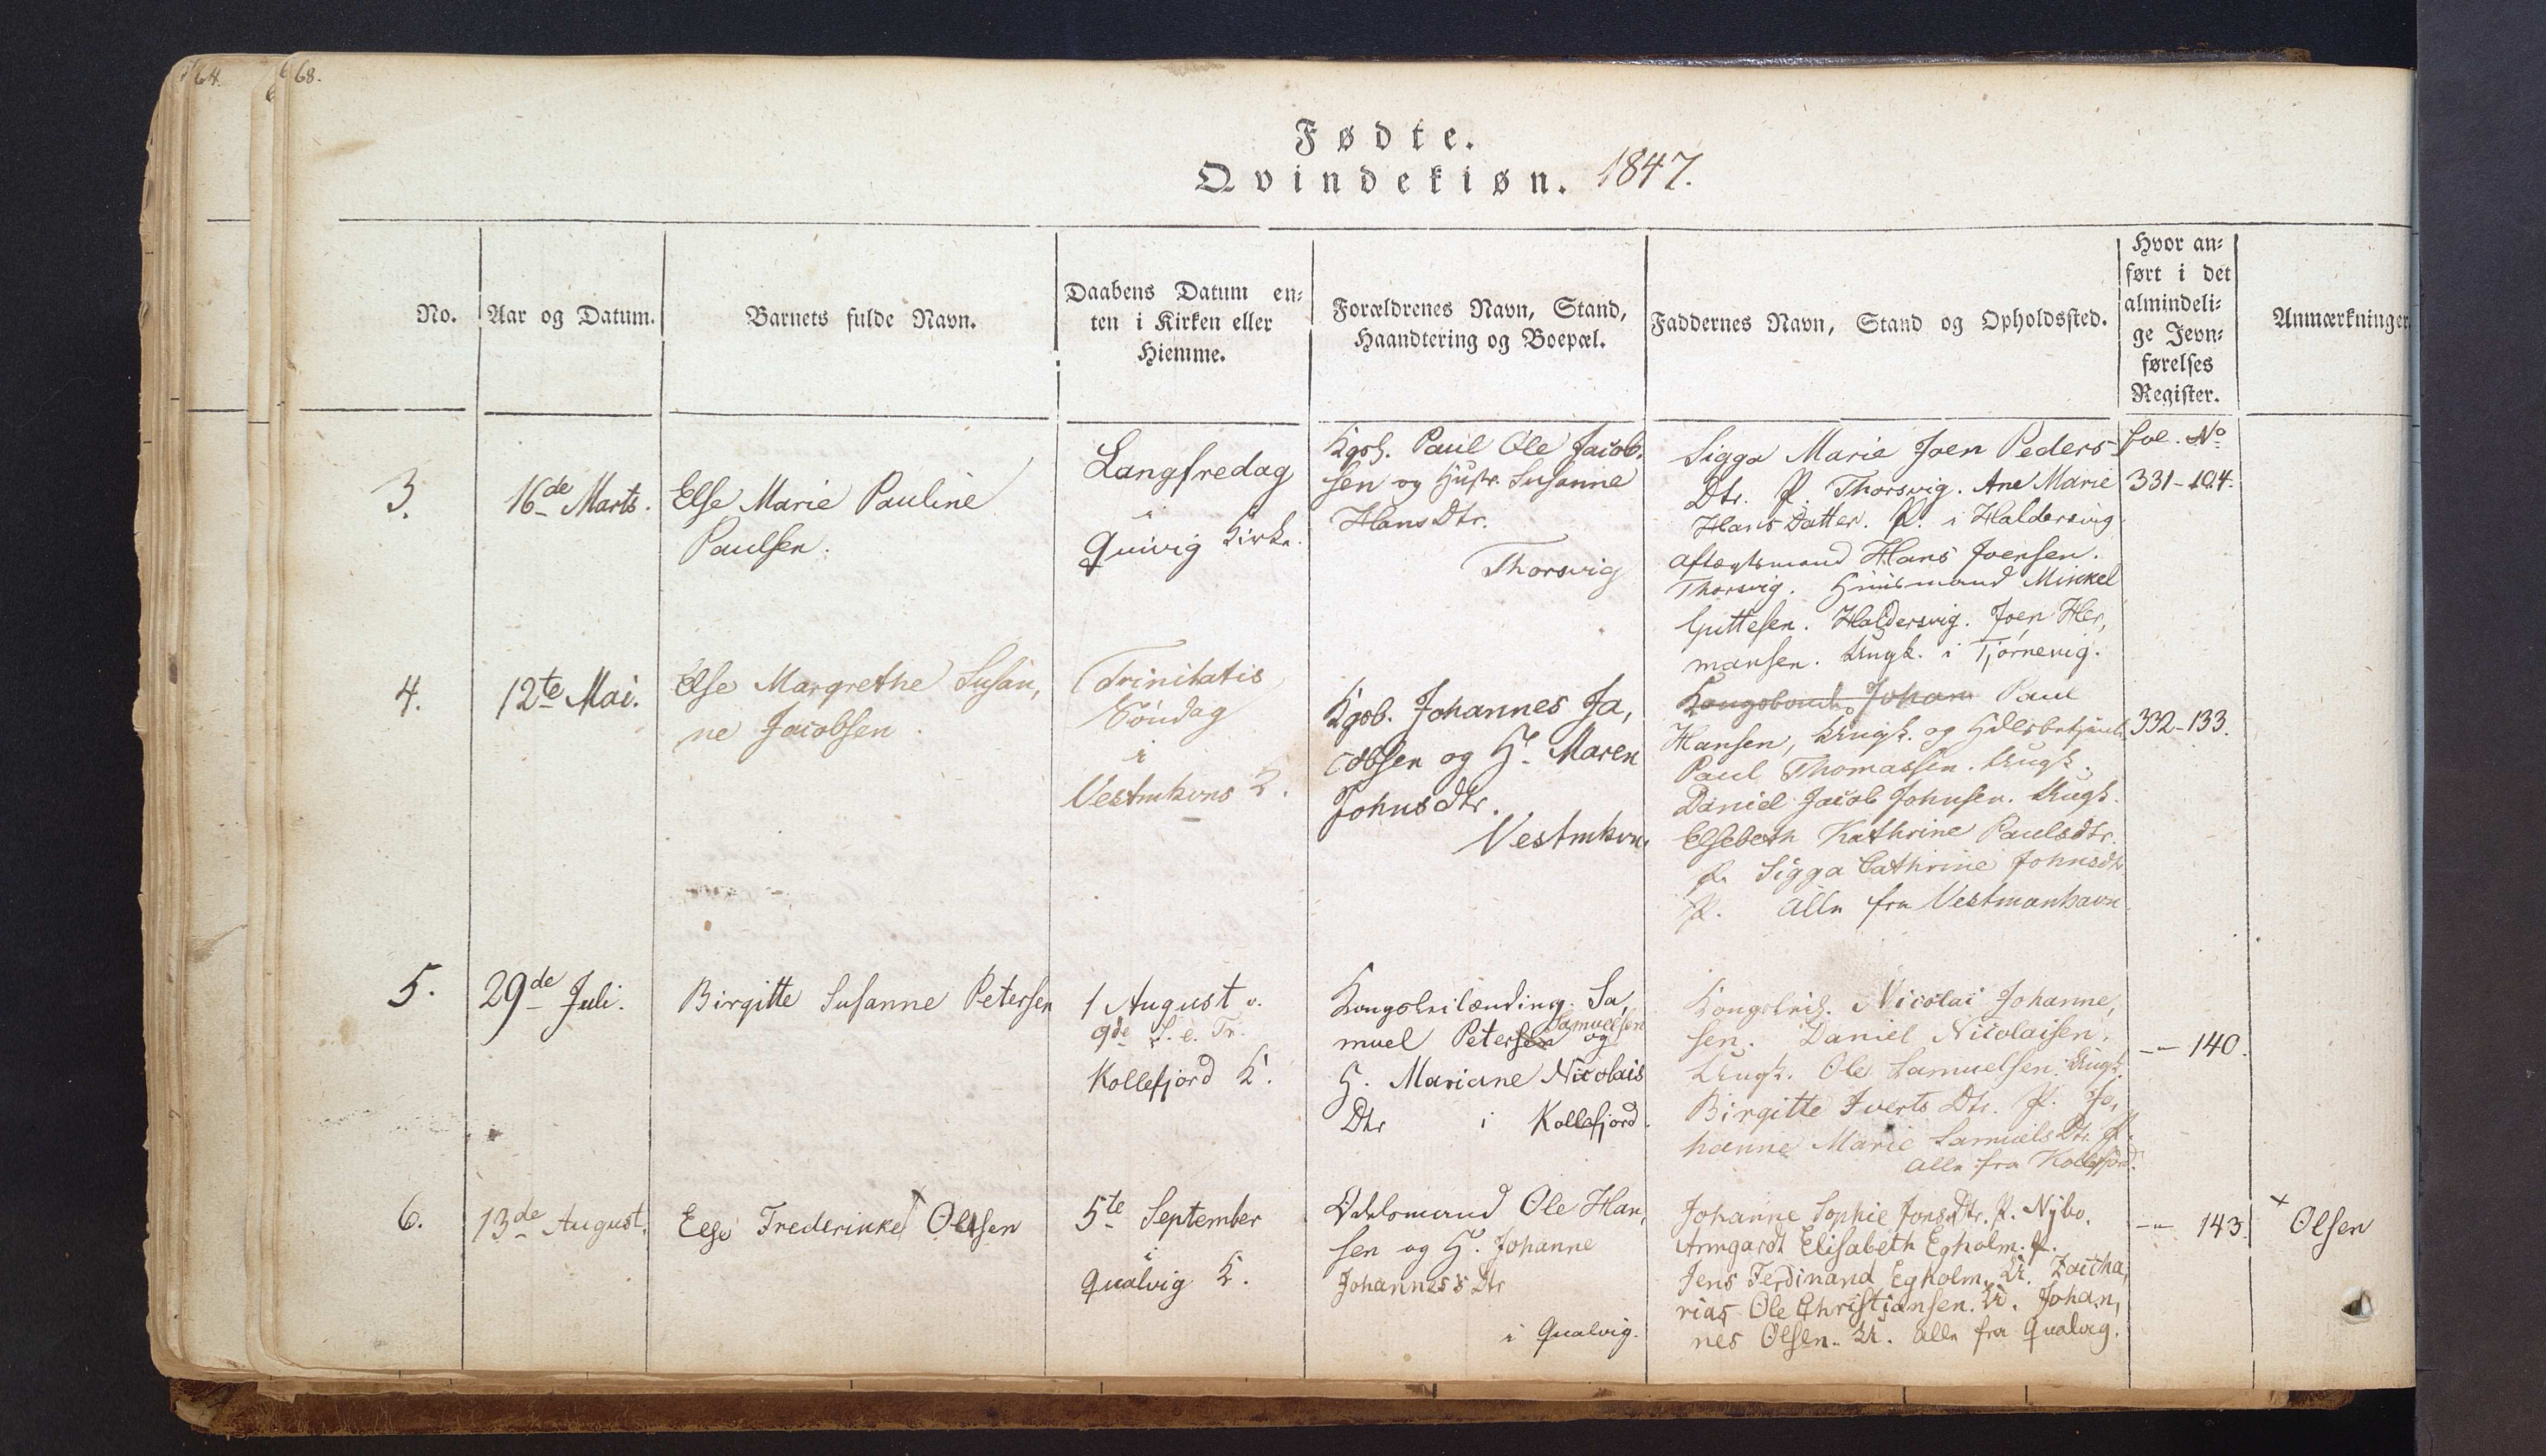 64.
68.
Fødte.
Qvindekiøn. 1847.
No.
Aar og Datum.
Barnets fulde Navn.
Daabens Datum en-
ten i Kirken eller
Hiemme.
Forældrenes Navn, Stand,
Haandtering og Boepæl.
Faddernes Navn, Stand og Opholdssted.
Hvor an-
ført i det
almindeli-
ge Jevn-
førelses
Register.
Anmærkninger
3.
16de Marts.
Else Marie Pauline
Paulsen.
Langfredag
i
Quivig Kirke.
Kgsb. Paul Ole Jacob,
sen og Hustr. Susanne
Hans Dtr.
Thorsvig
Sigga Marie Joen Peders-
Dtr. P. Thorsvig. Ane Marie
Hans Datter. P. i Haldersvig
Aftægtsmand Hans Joensen.
Thorsvig. Huusmand Mikkel
Guttesen. Haldersvig. Joen Her,
mansen. Ungk. i Tjørnevig.
fol. No
331-104.
4.
12te Mai.
Else Margrethe Susan,
ne Jacobsen.
Trinitatis
Söndag
i
Vestmhvns K.
Kgsb. Johannes Ja,
cobsen og H. Maren
Johnsdtr.
Vestmhvn.
Kongsbonde Johan Paul
Hansen, Ungk. og
Paul Thomassen. Ungk.
Daniel Jacob Johnsen. Ungk.
Elsebeth Kathrine Paulsdtr.
P. Sigga Cathrine Johnsdtr
P. Alle fra Vestmanhavn
332-133.
5.
29de Juli.
Birgitte Susanne Petersen
1 August v.
9de S. e. Tr.
Kollefjord K.
Kongsleilænding. Sa,
muel Petersen Samuelsen og
H. Mariane Nicolais
Dtr i Kollefjord.
Nicolai Johanne,
sen. Daniel Nicolaisen.
Ungk. Ole Samuelsen. Ungk.
Birgitte Iverts Dtr. P. Jo,
hanne Marie Samuels Dtr. P.
Alle fra Kollefjord.
-"- 140.
6.
13de August.
Else Frederikke Olsen
5te September
i
Qualvig K.
Odelsmand Ole Han,
sen og H. Johanne
Johannes's Dtr
i Qualvig.
Johanne Sophie JonsDtr. P. Nybo.
Armgardt Elisabeth Egholm. P.
Jens Ferdinand Egholm. U. Zacha,
rias Ole Christjansen. U. Johan,
nes Olsen. U. Alle fra Qualvig.
-"- 143.
× Olsen